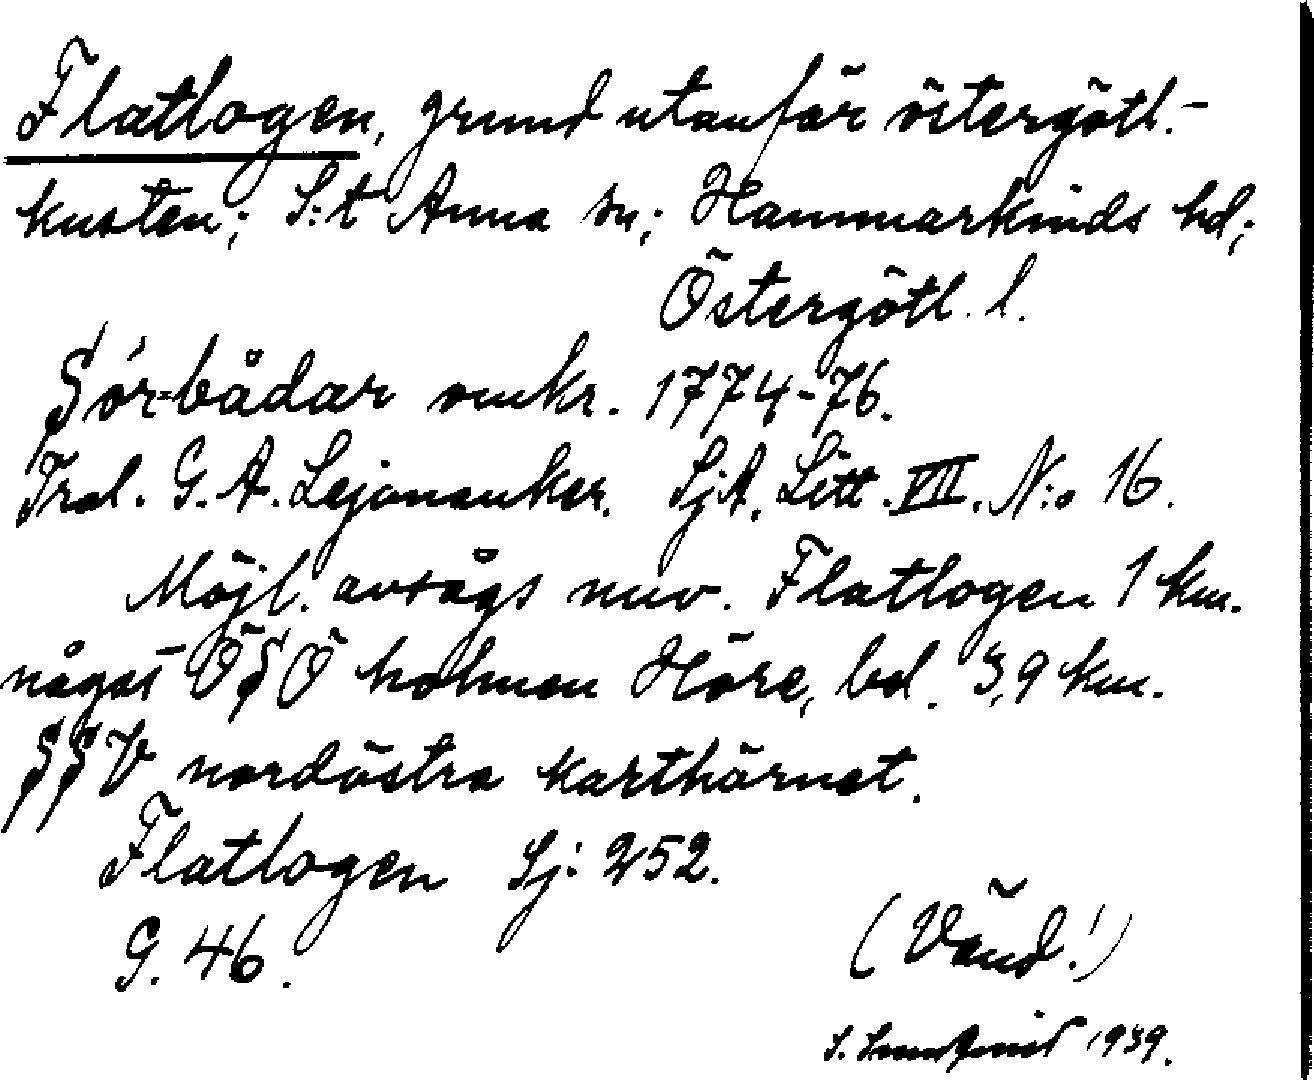 Flatlogen, grund utanför östergötl.-
kusten; S:t Anna sn; Hammarkinds hd;
Östergötl. l.
Sör-bådar omkr. 1774-76.
Tral. G. A. Lejonanker. SjA. Litt. VII. N:o 16.
Möjl. avsågs nuv. Flatlogen 1 km.
någøt ÖSÖ holmen Höre, bel. 3,9 km.
SSV nordöstra karthörnet.
Flatlogen Sj: 252.
G. 46.
(Vänd!)
S. Lundqvist 1939.